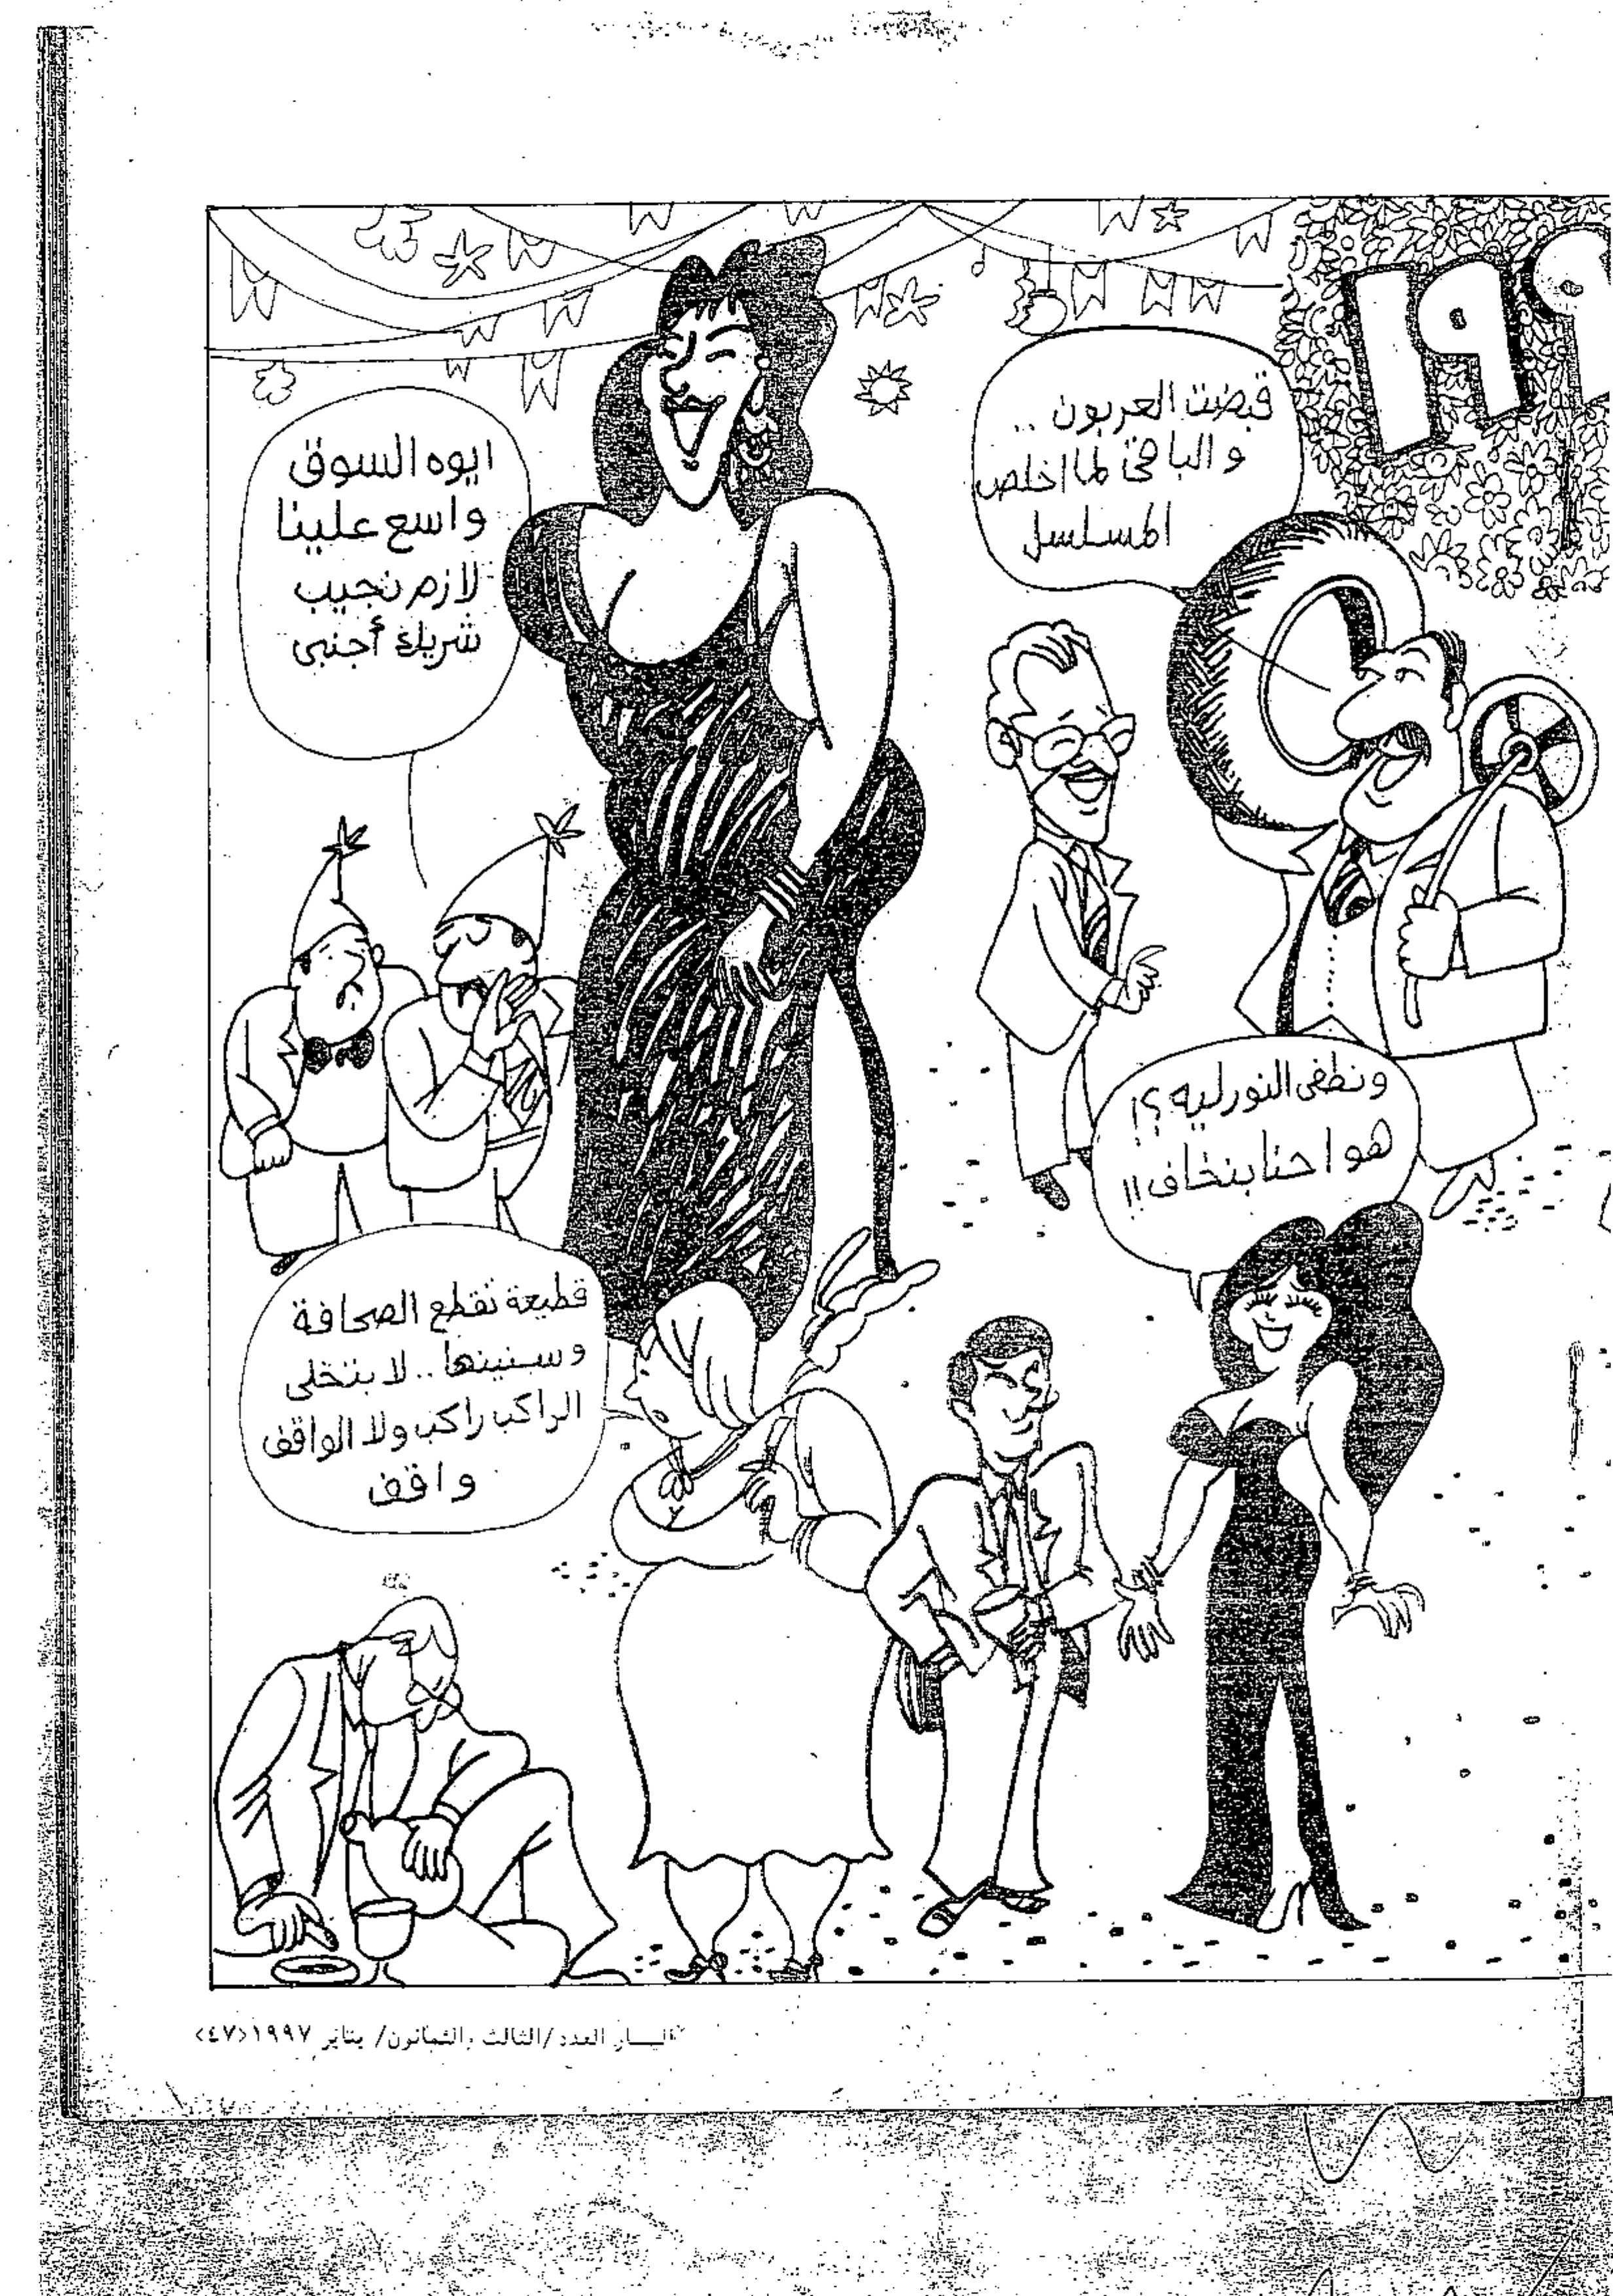 ١٩٩
قبضت العربون ..
و الباقى لما اخلص
المسلسل
ايوه السوق
واسع علينا
لازم نجيب
شريك أجنبى
ونطفى النور ليه ؟!
هو احنا بنخاف !!
قطيعة تقطع الصحافة
وسنينها .. لا بتخلى
الراكب راكب ولا الواقف
واقف
اليسار العدد/الثالث والثمانون/ يناير ١٩٩٧<٤٧>